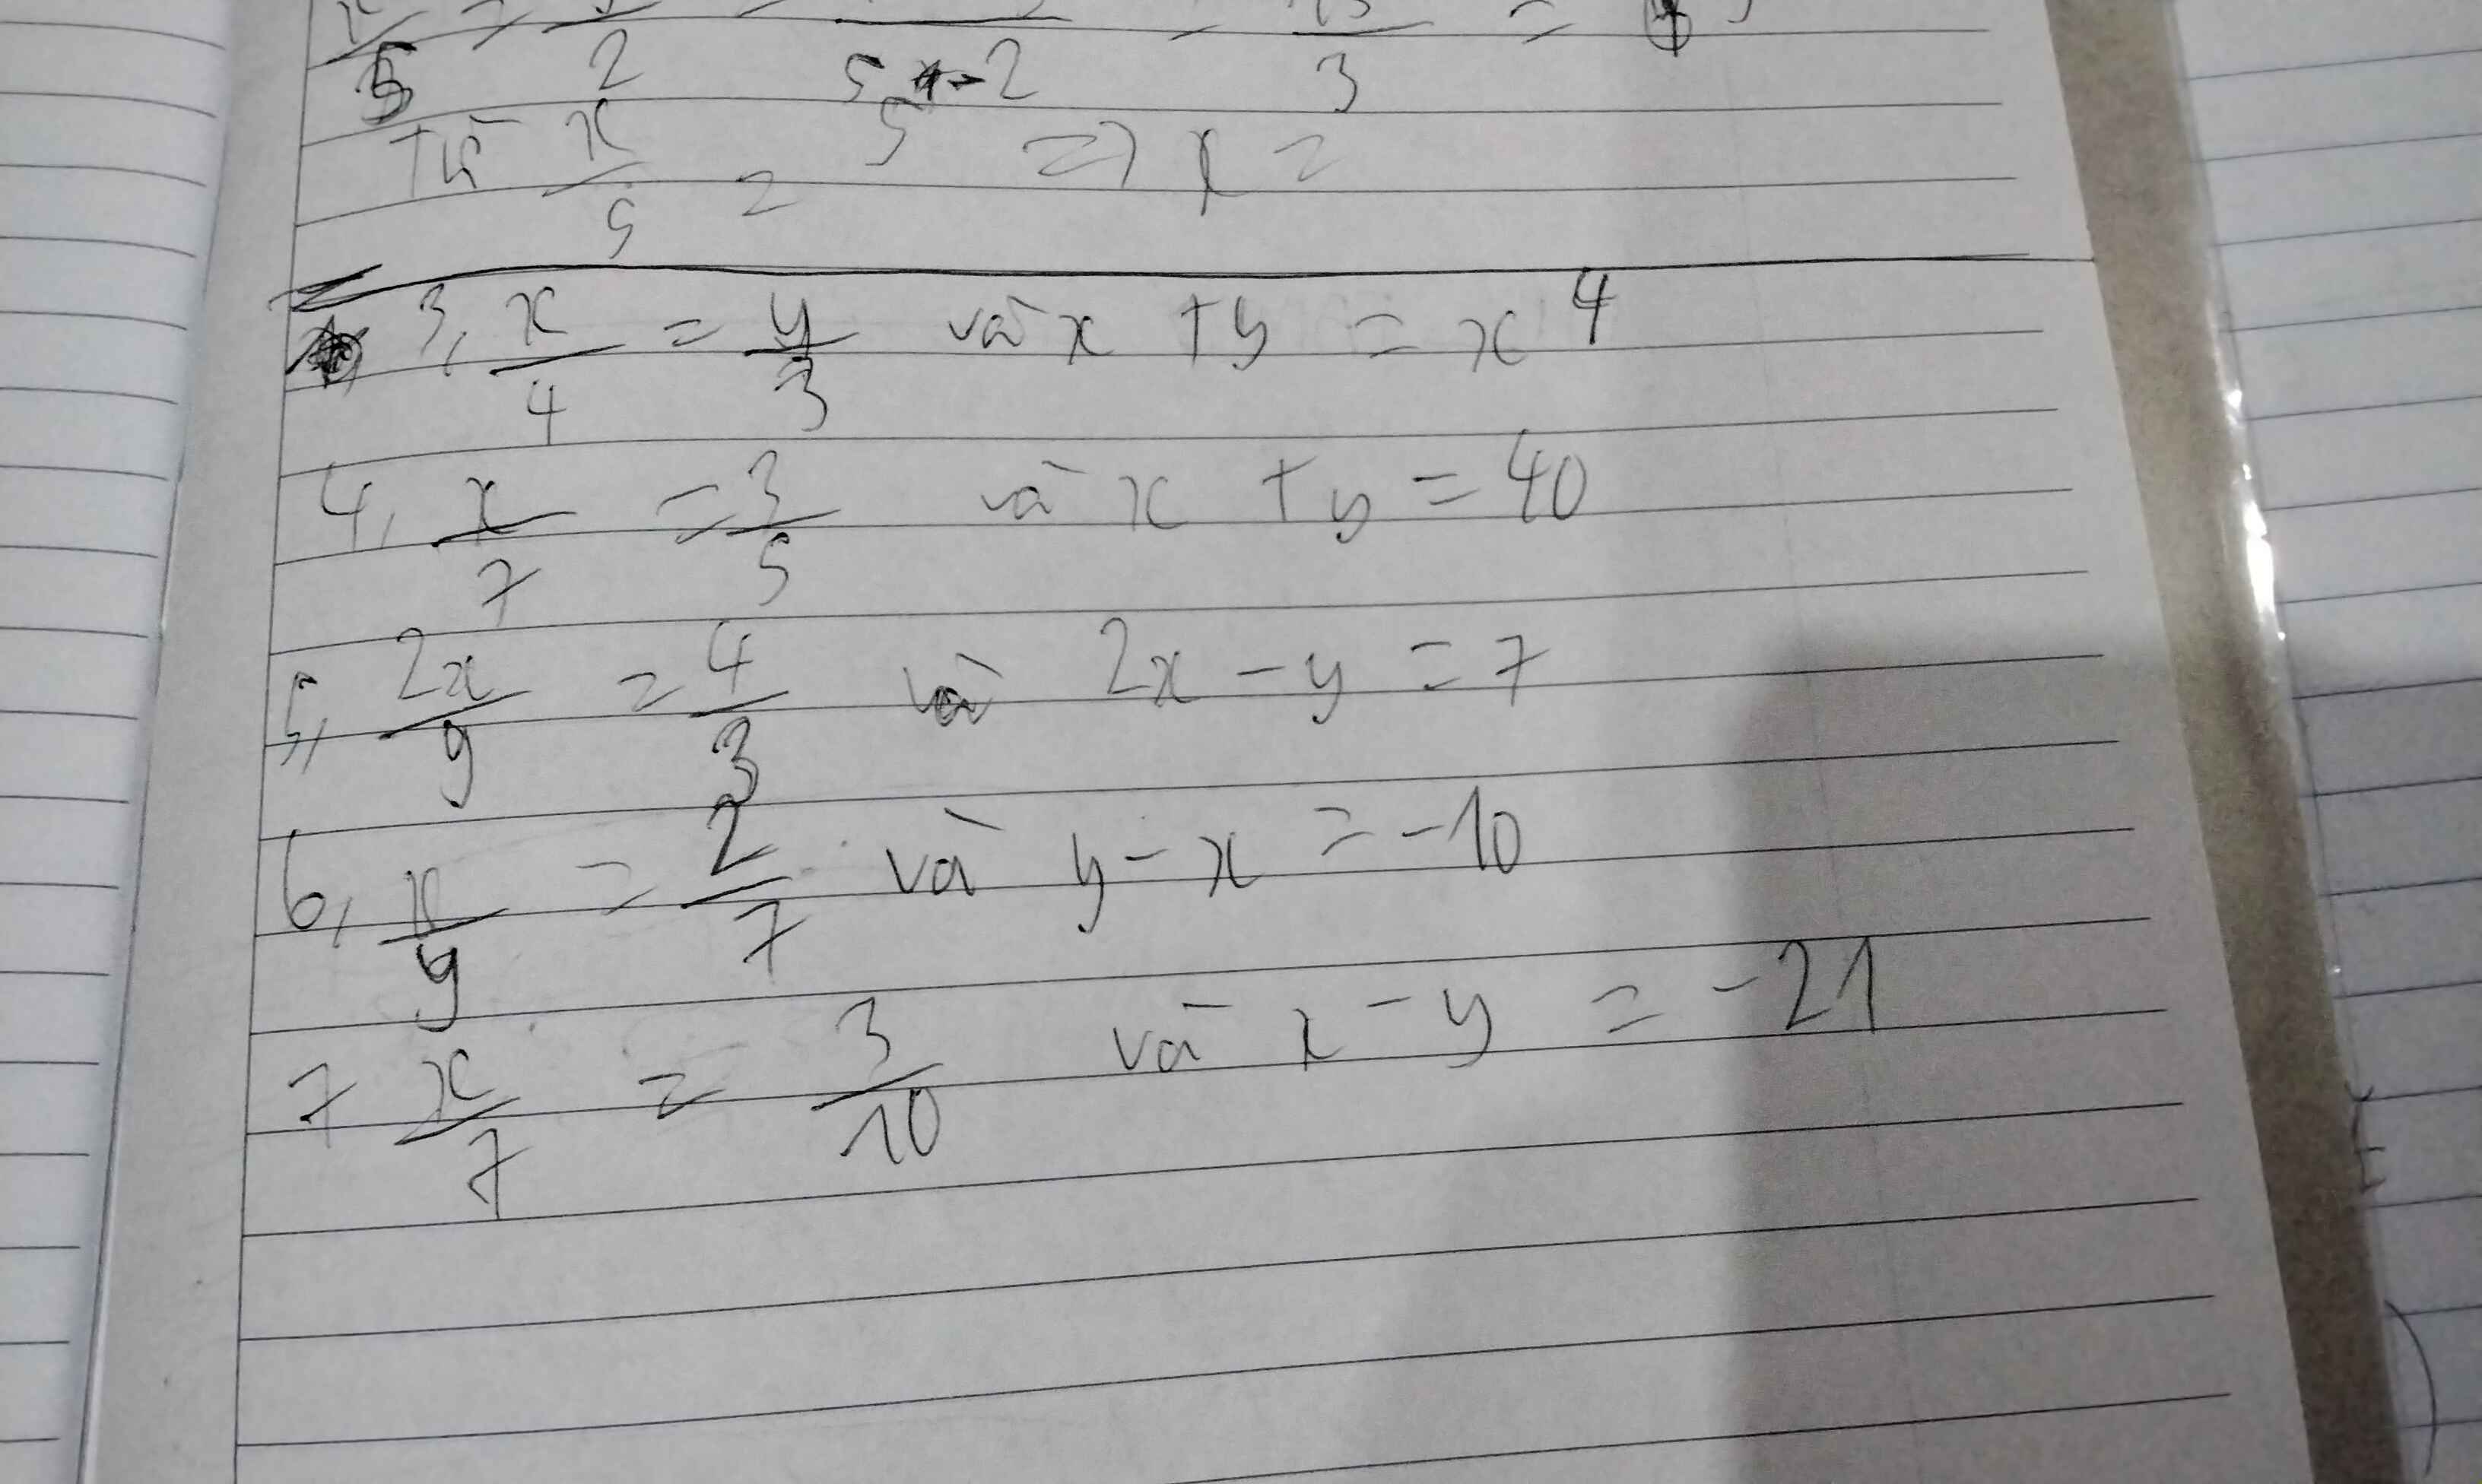 x/5 = /2 = /5-2 = 15/3 = 5
Từ x/5 = 5 => x =
3, x/4 = y/3 và x + y = x 4
4, x/7 = 3/5 và x + y = 40
5, 2x/9 = 4/3 và 2x - y = 7
6, x/y = 2/7 và y - x = -10
7 x/7 = 3/10 và x - y = -21